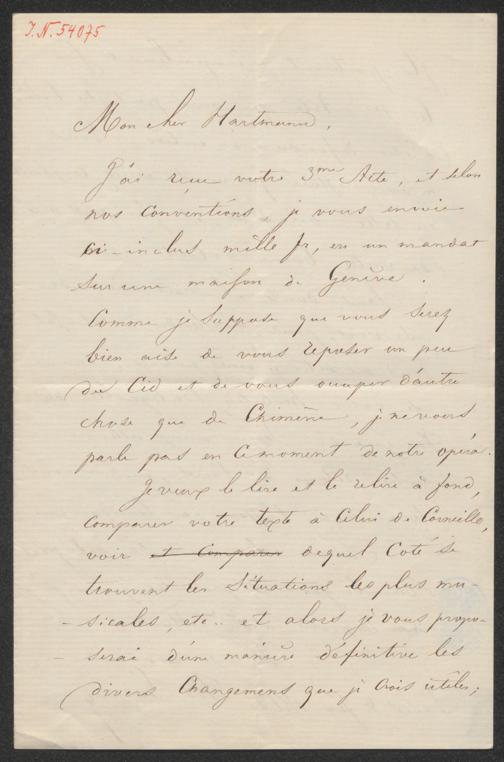 J.N. 54075
Mon cher Hartmann,
J'ai reçu votre 3me Acte, et selon
nos conventions, je vous envoie
ci-inclus mille fr, en un mandat
sur une maison de Genève.
Comme je suppose que vous serez
bien aise de vous reposer un peu
du Cid et de vous occuper d'autre
chose que de Chimène, je ne vous
parle pas en ce moment de notre opéra.
Je veux le lire et le relire à fond,
comparer votre texte à celui de Corneille,
voir et comparer dequel Coté se
trouvent les Situations les plus mu-
-sicales, etc.. et alors je vous propo-
-serai d'une manière définitive les
divers Changemens que je crois utiles;